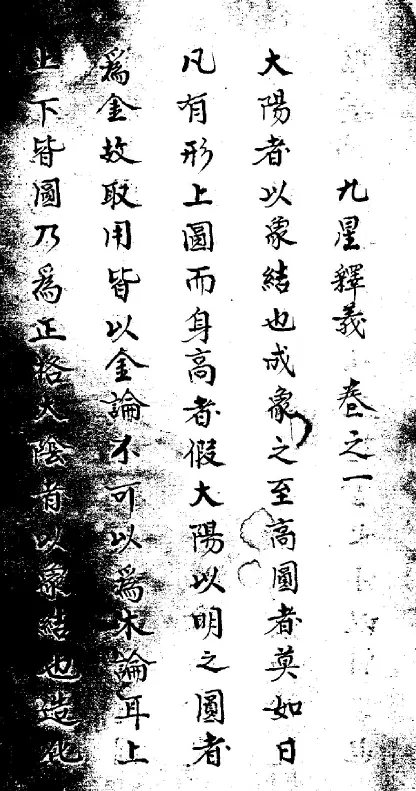 九星釋義 卷之一
大陽者以象結也成象之至高圓者莫如日
凡有形上圓而身高者假大陽以明之圓者
爲金故取用皆以金論不可以爲木論耳上
上下皆圓乃爲正格大陰者以象結也造化